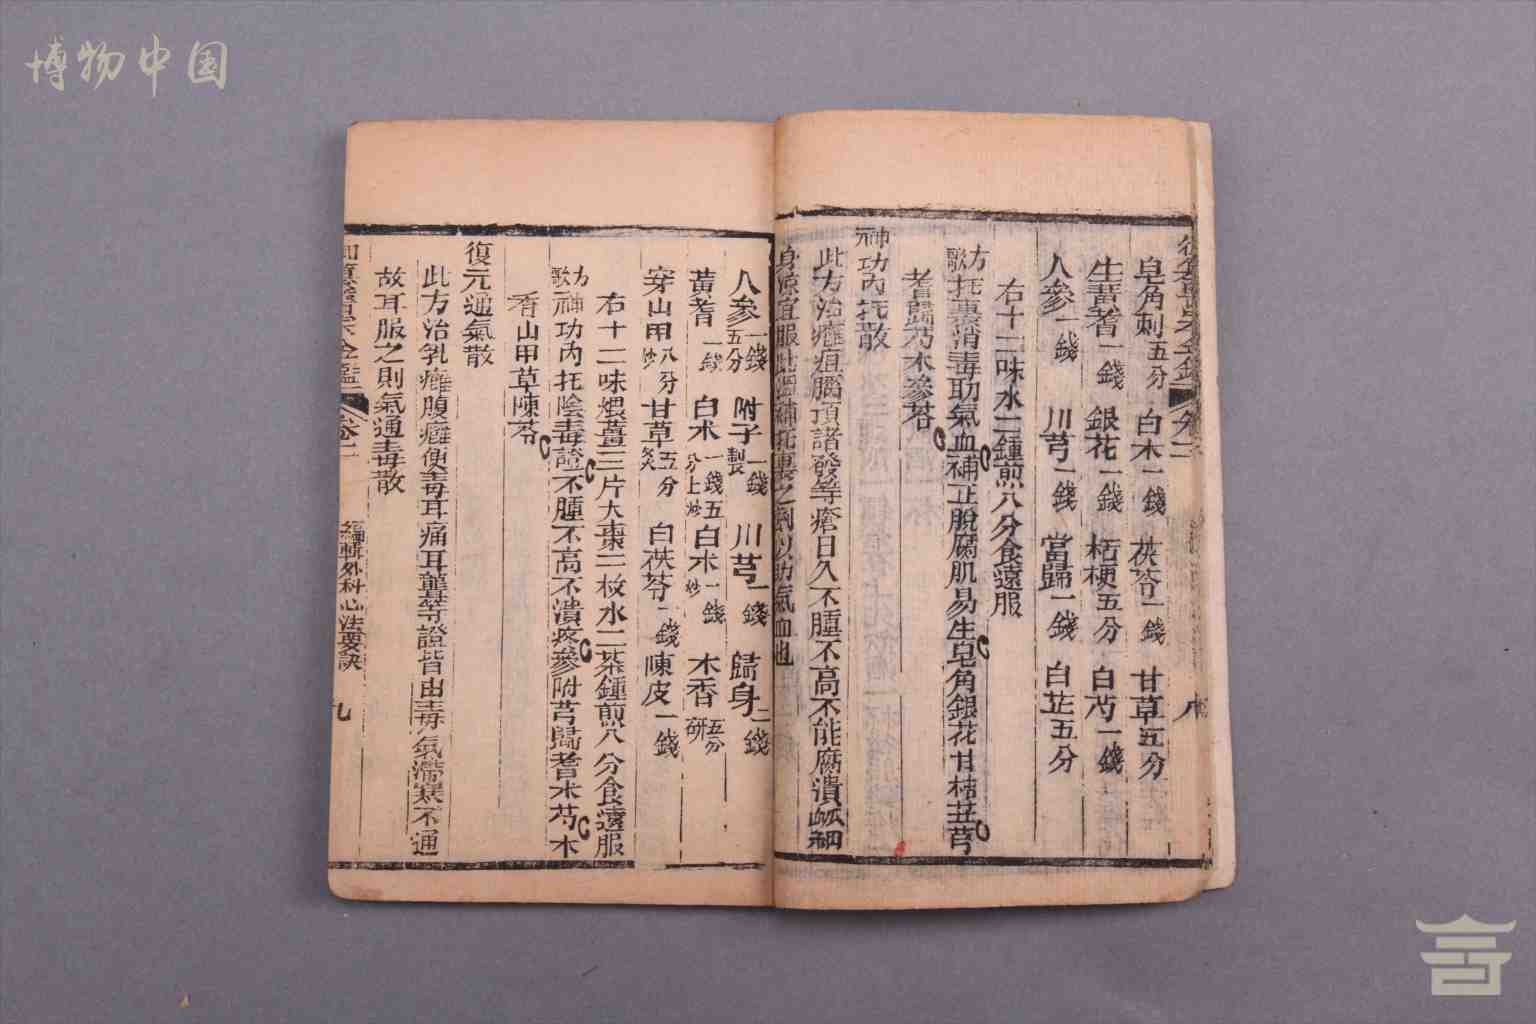 博物中国
皂角刺五分 白朮一錢 茯苓一錢 甘草五分
生黃耆一錢 銀花一錢 桔梗五分 白芍一錢
人參一錢 川芎一錢 當歸一錢 白芷五分
右十二味水二鍾煎八分食遠服
方歌 托裏消毒助氣血補正脫腐肌易生皂角銀花甘桔芷芎
耆歸芍朮參苓
神功內托散
此方治癰疽腦項諸發等瘡日久不腫不高不能腐潰脈細
身涼宜服此溫補托裏之劑以助氣血也
人參一錢五分 附子製一錢 川芎一錢 歸身二錢
黃耆一錢 白朮一錢五分土炒 白朮炒一錢 木香五分研
穿山甲八分炒 甘草五分炙 白茯苓一錢 陳皮一錢
右十二味煨薑三片大棗二枚水二茶鍾煎八分食遠服
方歌 神功內托陰毒證不腫不高不潰疼參附芎歸耆朮芍木
香山甲草陳苓
復元通氣散
此方治乳癰腹癰便毒耳痛耳聾等證皆由毒氣滯寒不通
故耳服之則氣通毒散
卷二 編輯外科心法要訣 九